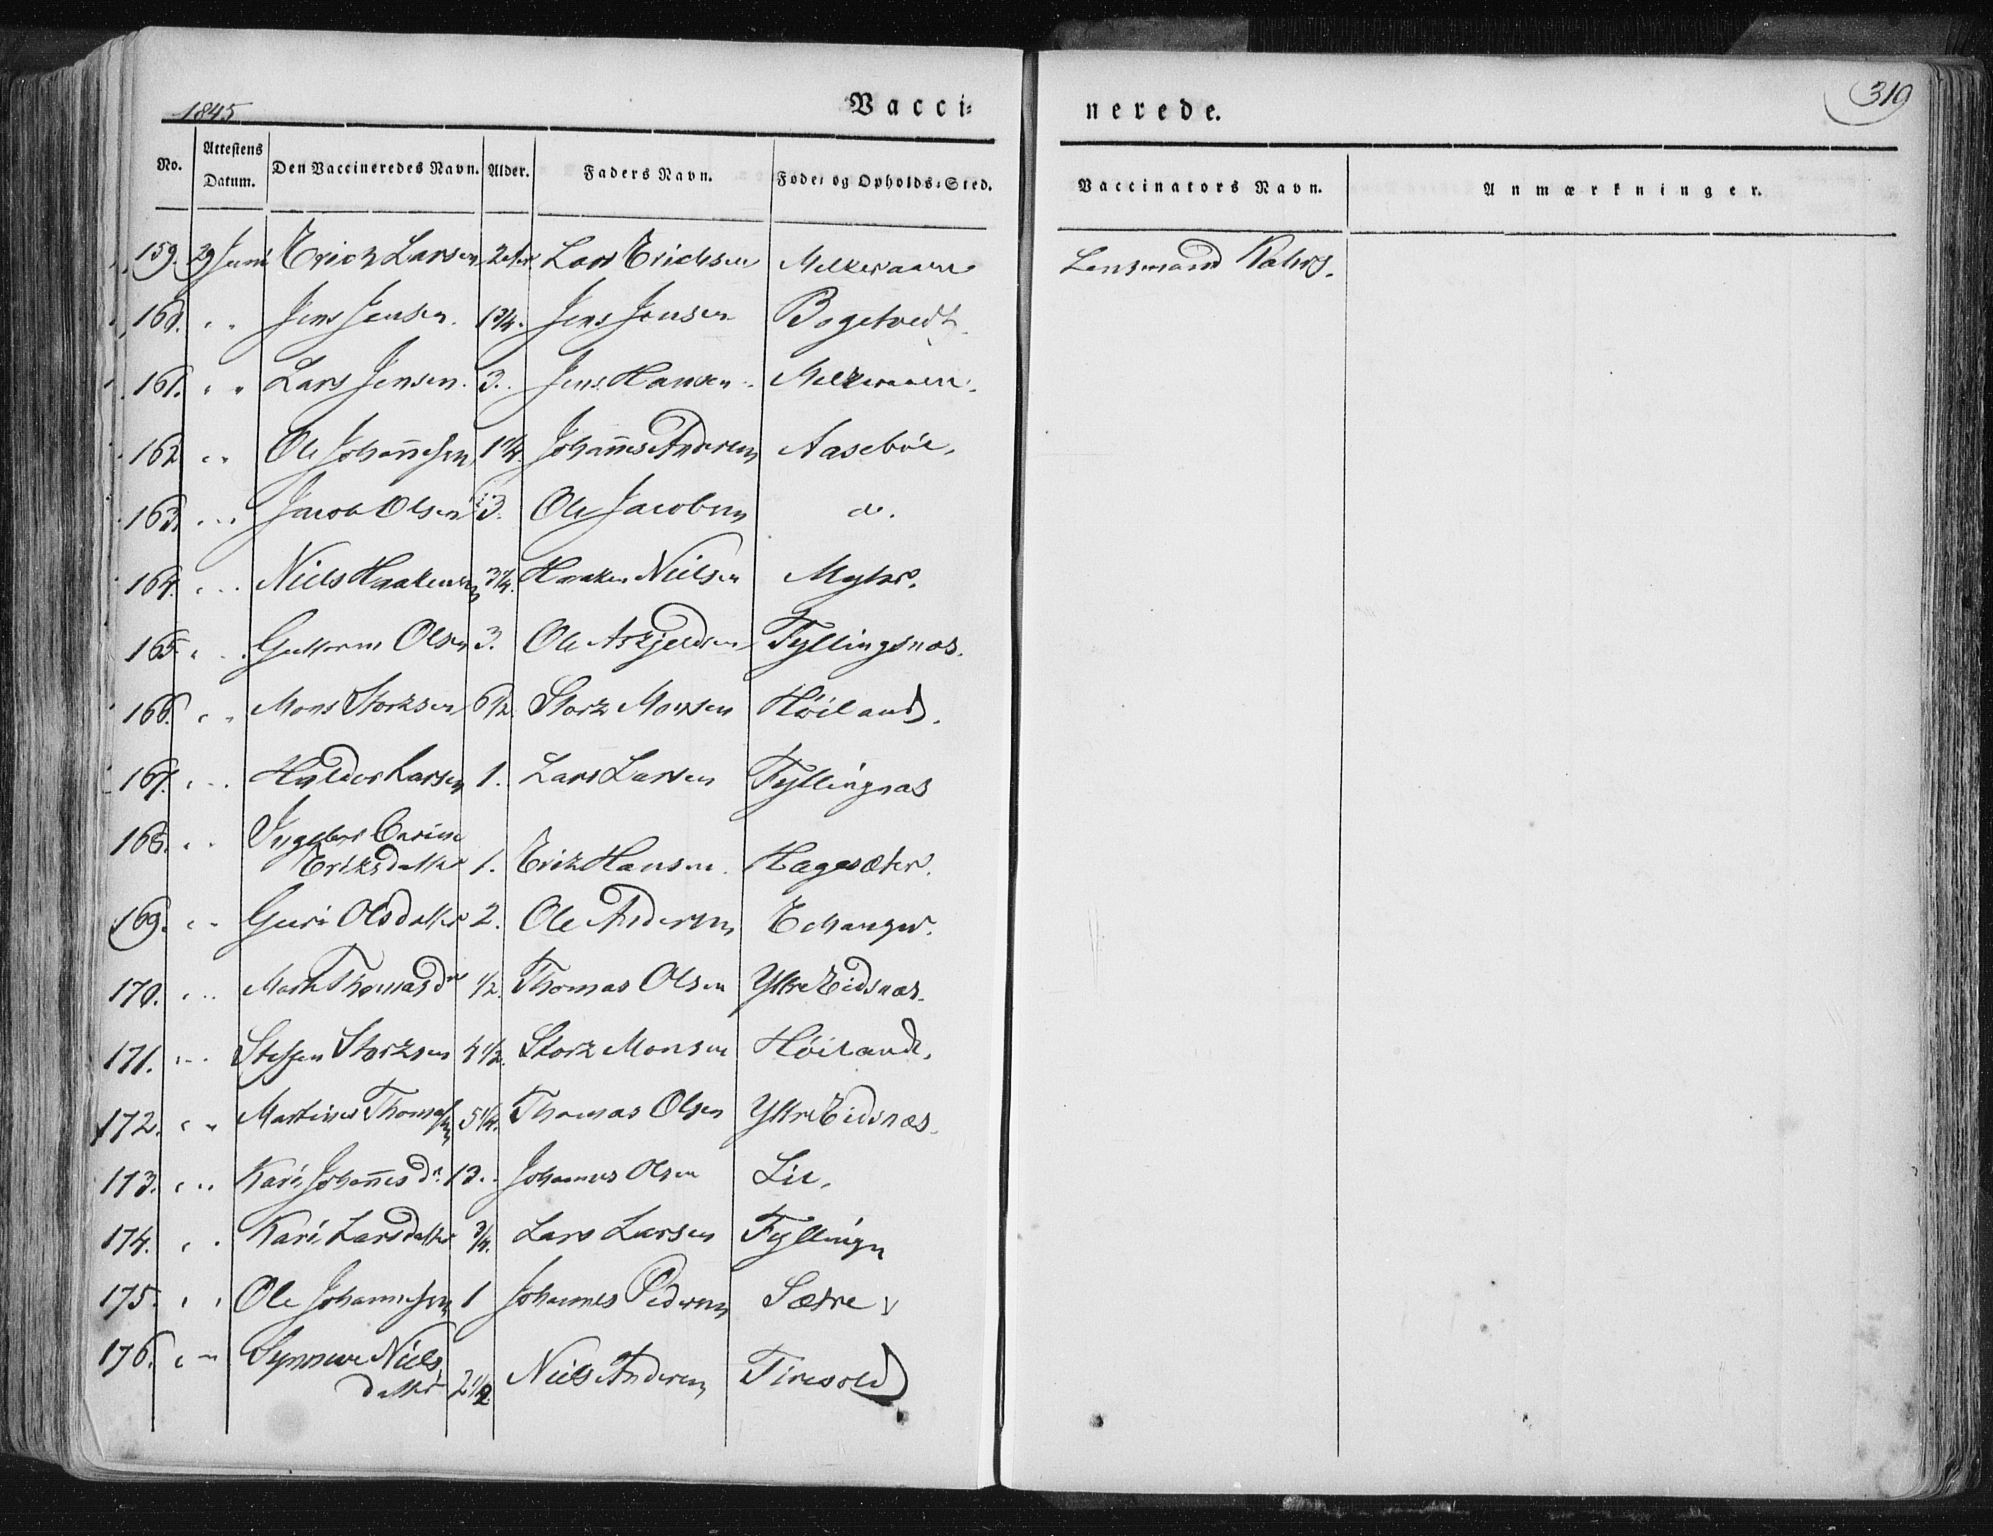 1845 Vacci= nerede. 319
No. Attestens Datum. Den Vaccineredes Navn. Alder. Faders Navn. Føde- og Opholds-Sted. Vaccinators Navn. Anmærkninger.
159. 29 Juni Erich Larsen 2 Lars Erichsen Melkeraaen Lensmand Rahrs.
160. " " Jens Jensen. 1 3/4. Jens Jensen Bogetvedt.
161. " " Lars Jensen. 3. Jens Hansen. Melkeraaen.
162 " " Ole Johannesen 1 1/4. Johannes Andersen Aasebøe.
163. " " Jacob Olsen 3. Ole Jacobsen do.
164. " " Niels Haakensen 3 1/4. Haaken Nielsen Myhr.
165. " " Guttorm Olsen 3. Ole Askjeldsen Fyllingsnæs.
166. " " Mons Storksen 6 1/2. Stork Monsen Høiland.
167. " " Haldor Larsen 1. Lars Larsen Fyllingnæs
168. " " Ingebor Carine
Eriksdatter 1. Erik Hansen. Hagesæter.
169. " " Guri Olsdatter 2. Ole Andersen Echanger.
170. " " Marth Thomasdr 1/2. Thomas Olsen Yttre Eidsnæs.
171. " " Steffen Storksen 4 1/2. Stork Monsen Høiland.
172. " " Martinus Thomassen 5 1/4. Thomas Olsen Yttre Eidsnæs.
173. " " Kari Johannesdr. 13. Johannes Olsen Lie.
174. " " Kari Larsdatter 3/4. Lars Larsen Fyllingn
175. " " Ole Johannesen 1 Johannes Pedersen Sætre
176. " " Synneve Niels
datter 2 1/2 Niels Andersen Tiresold